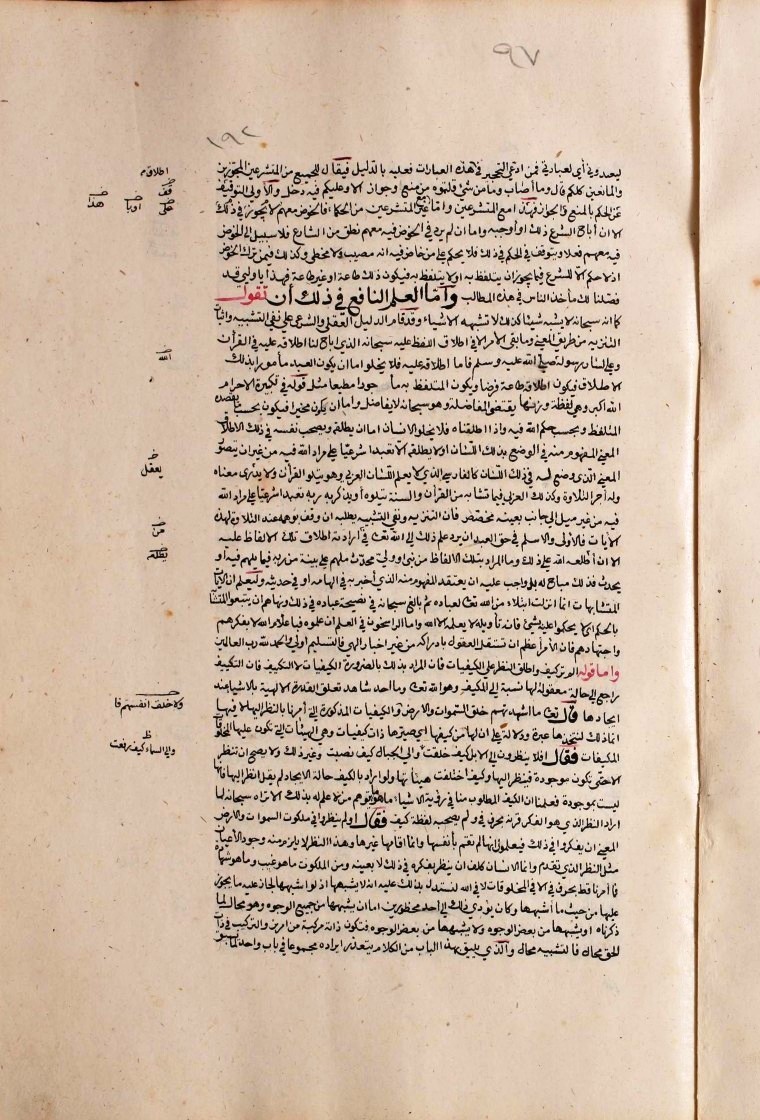 ٩٧
١٩٢
فمن ادعى التحجير في هذه العبارات فعليه بالدليل فيقال للجميع من المتشرعين المجوزين
والمانعين كلكم قال وما أصاب وما من شيء قلتموه من منع وجواز الا وعليكم فيه دخل والأولى التوقف
عن الحكم بالمنع والجواز فهذا مع المتشرعين واما غير المتشرعين من الحكماء فالخوض معهم لا يجوز في ذلك
الا ان أباح الشرع ذلك او أوجبه واما ان لم يرد في الخوض فيه معهم نطق من الشارع فلا سبيل الى الخوض
فيه معهم فعلا ويتوقف في الحكم في ذلك فلا يحكم على من خاض فيه انه مصيب ولا مخطئ وكذلك فيمن ترك الخوض
اذ لا حكم الا للشرع فيما يجوز ان يتلفظ به او لا يتلفظ به فيكون ذلك طاعة او غير طاعة فهذا يا ولي قد
فصلنا لك مآخذ الناس في هذه المطالب وأما العلم النافع في ذلك أن نقول
كما انه سبحانه لا يشبه شيئا كذلك لا تشبهه الاشياء وقد قام الدليل العقلي والشرعي على نفي التشبيه واثبات
التنزيه من طريق المعنى وما بقي الامر الا في اطلاق اللفظ عليه سبحانه الذي اباح لنا اطلاقه عليه في القرآن
وعلى لسان رسوله صلى الله عليه وسلم فاما اطلاقه عليه فلا يخلو اما ان يكون العبد مأمورا بذلك
الاطلاق فيكون اطلاقه طاعة فرضا ويكون المتلفظ به مأجورا مطيعا مثل قوله في تكبيرة الاحرام
الله اكبر وهي لفظة وزنها يقتضي المفاضلة وهو سبحانه لا يفاضل واما ان يكون مخيرا فيكون بحسب ما يقصده
المتلفظ وبحسب حكم الله فيه واذا اطلقناه فلا يخلو الانسان اما ان يطلقه ويصحب نفسه في ذلك الاطلاق
المعنى المفهوم منه في الوضع بذلك اللسان او لا يطلقه الا تعبدا شرعيا على مراد الله فيه من غير ان يتصور
المعنى الذي وضع له في ذلك اللسان كالفارسي الذي لا يعلم اللسان العربي وهو يتلو القرآن ولا يدري معناه
وله اجر التلاوة وكذلك العربي فيما تشابه من القرآن والسنة يتلوه او يذكر به ربه تعبدا شرعيا على مراد الله
فيه من غير ميل الى جانب بعينه مخصص فان التنزيه ونفي التشبيه يطلبه ان وقف بوهمه عند التلاوة لهذه
الآيات فالأولى والاسلم في حق العبد ان يرد علم ذلك الى الله تعالى في ارادته اطلاق تلك الالفاظ عليه
الا ان أطلعه الله على ذلك وما المراد بتلك الالفاظ من نبي او ولي محدث ملهم على بينة من ربه فيما يلهم فيه او
يحدث فذلك مباح له بل واجب عليه ان يعتقد المفهوم منه الذي أخبر به في الهامه او في حديثه وليعلم ان الآيات
المتشابهات انما انزلت ابتلاء من الله تعالى لعباده ثم بالغ سبحانه في نصيحة عباده في ذلك ونهاهم ان يتبعوا المتشابه
بالحكم اي لا يحكموا عليه بشيء فان تأويله لا يعلمه الا الله واما الراسخون في العلم ان علموه فباعلام الله لا بفكرهم
واجتهادهم فان الأمر أعظم ان تستقل العقول بادراكه من غير اخبار الهي فالتسليم اولى والحمد لله رب العالمين
واما قوله الم تر كيف واطلق النظر على الكيفيات فان المراد بذلك بالضرورة الكيفيات لا التكييف فان التكييف
راجع الى حالة معقولة لها نسبة الى المكيف وهو الله تعالى وما احد شاهد تعلق القدرة الالهية بالاشياء عند
ايجادها قال تعالى ما اشهدتهم خلق السموات والارض فالكيفيات المذكورة التي أمرنا بالنظر اليها لا فيها
انما ذلك لنتخذها عبرة ودلالة على ان لها من كيفها اي صيرها ذات كيفيات وهي الهيئات التي تكون عليها المخلوقات
المكيفات فقال افلا ينظرون الى الابل كيف خلقت والى الجبال كيف نصبت وغير ذلك ولا يصح ان تنظر
الا حتى تكون موجودة فينظر اليها وكيف اختلفت هيئاتها ولو اراد بالكيف حالة الايجاد لم يقل انظر اليها فانها
ليست بموجودة فعلمنا ان الكيف المطلوب منا في رؤية الاشياء ما هو ما يتوهم من لا علم له بذلك الا تراه سبحانه لما
اراد النظر الذي هو الفكر قرنه بحرف في ولم يصحبه لفظة كيف فقال اولم ينظروا في ملكوت السموات والارض
المعنى ان يفكروا في ذلك فيعلموا انها لم تقم بأنفسها وانما اقامها غيرها وهذا النظر لا يلزم منه وجود الأعيان
مثل النظر الذي تقدم وانما الانسان كلف ان ينظر بفكره في ذلك لا بعينه ومن الملكوت ما هو غيب وما هو شهادة
فما أمرنا قط بحرف في الا في المخلوقات لا في الله لنستدل بذلك عليه انه لا يشبهها اذ لو اشبهها لجاز عليه ما يجوز
عليها من حيث ما أشبهها وكان يؤدي ذلك الى احد محظورين اما ان يشبهها من جميع الوجوه وهو محال لما
ذكرناه او يشبهها من بعض الوجوه ولا يشبهها من بعض الوجوه فتكون ذاته مركبة من امرين والتركيب في ذات
الحق محال فالتشبيه محال والذي يليق بهذا الباب من الكلام يتعذر ايراده مجموعا في باب واحد لما يسبق
اطلاقه
الله
يعقل
من
يطلبه
ولا خلق انفسهم فا
والى السماء كيف رفعت